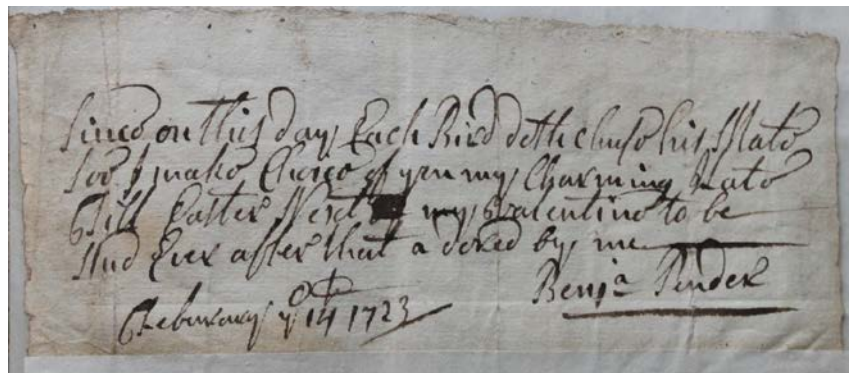 Since on this day Each Bird doth chuse his Mate
Soe I make Choice of you my Charming Kate
Till Easter Next my Valentine to be
And Ever after that adored by me
Benja Pinder
February ye 14th 1723